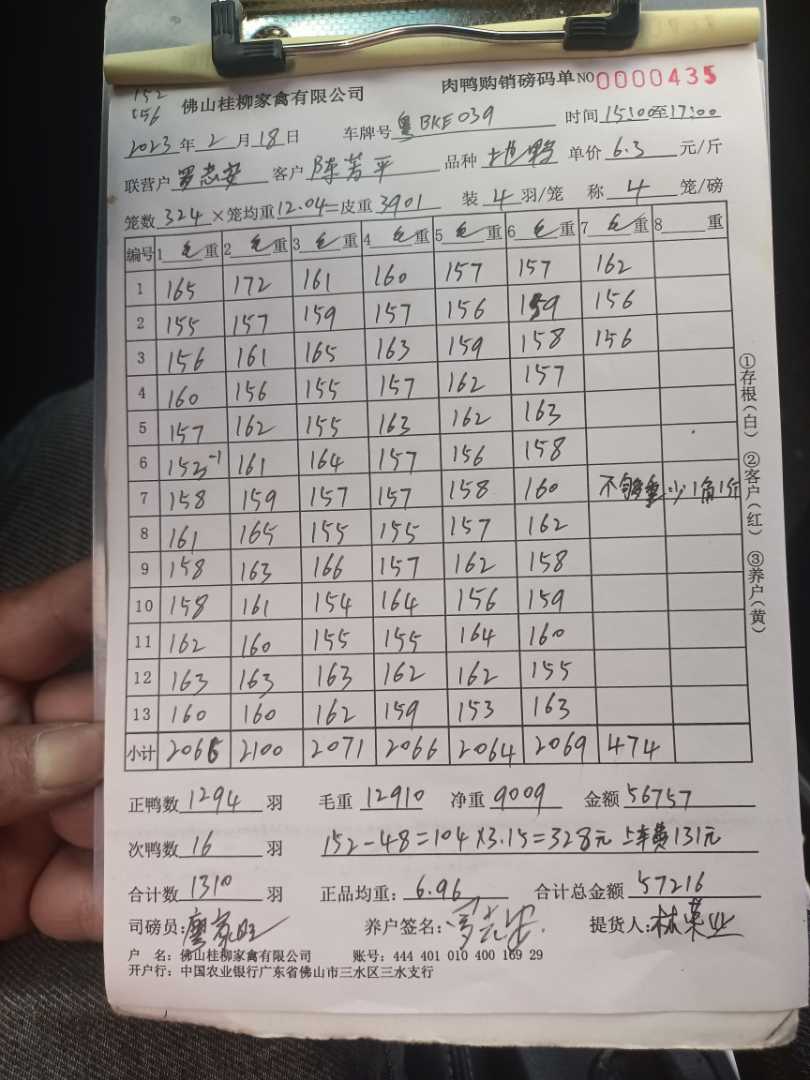 152
156
佛山桂柳家禽有限公司 肉鸭购销磅码单 NO 0000435
2023年2月18日 车牌号 粤BKE039 时间 15:00至17:00
联营户 罗志安 客户 陈芳平 品种 土也鸭 单价 6.3 元/斤
笼数 324 ×笼均重 12.04=皮重 3901 装 4 羽/笼 称 4 笼/磅
编号 1 毛 重 2 毛 重 3 毛 重 4 毛 重 5 毛 重 6 毛 重 7 毛 重 8 重
1 165 172 161 160 157 157 162
2 155 157 159 157 156 159 156
3 156 161 165 163 159 158 156
4 160 156 155 157 162 157
5 157 162 155 163 162 163
6 152-1 161 164 157 156 158
7 158 159 157 157 158 160 不够重少1角1斤
8 161 165 155 155 157 162
9 158 163 166 157 162 158
10 158 161 154 164 156 159
11 162 160 155 155 164 160
12 163 163 163 162 162 155
13 160 160 162 159 153 163
小计 2066 2100 2071 2066 2064 2069 474
正鸭数 1294 羽 毛重 12910 净重 9009 金额 56757
次鸭数 16 羽 152-48=104×3.15=328元 上车费131元
合计数 1310 羽 正品均重: 6.96 合计总金额 57216
司磅员: 廖家旺 养户签名: 提货人: 林荣业
户 名: 佛山桂柳家禽有限公司 账号: 444 401 010 400 169 29
开户行: 中国农业银行广东省佛山市三水区三水支行
①存根(白) ②客户(红) ③养户(黄)